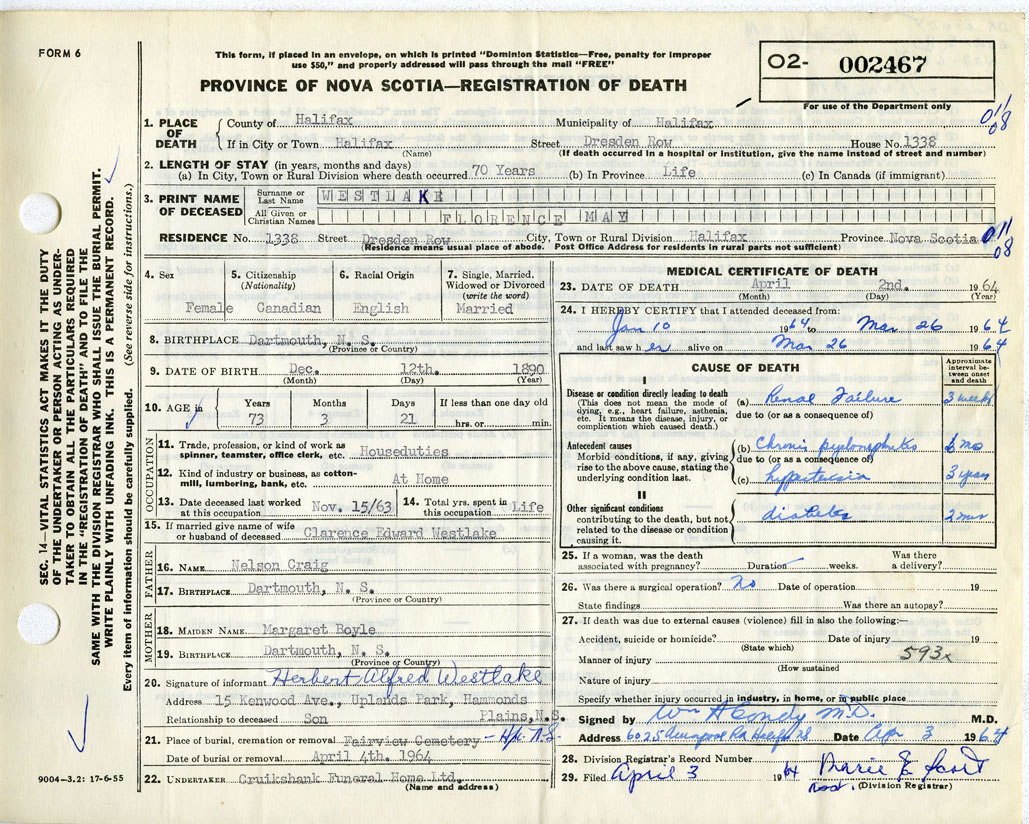 FORM 6
This form, if placed in an envelope, on which is printed "Dominion Statistics—Free, penalty for improper
use $50," and properly addressed will pass through the mail "FREE"
PROVINCE OF NOVA SCOTIA—REGISTRATION OF DEATH
O2- 002467
For use of the Department only
011
08
1. PLACE OF DEATH
County of Halifax Municipality of Halifax
If in City or Town Halifax Street Dresden Row House No. 1338
(Name) (If death occurred in a hospital or institution, give the name instead of street and number)
2. LENGTH OF STAY (in years, months and days)
(a) In City, Town or Rural Division where death occurred 70 Years (b) In Province Life (c) In Canada (if immigrant)
3. PRINT NAME OF DECEASED
Surname or Last Name WESTLAKE
All Given or Christian Names FLORENCE MAY
RESIDENCE No. 1338 Street Dresden Row City, Town or Rural Division Halifax Province Nova Scotia 011
(Residence means usual place of abode. Post Office Address for residents in rural parts not sufficient) 08
4. Sex Female
5. Citizenship (Nationality) Canadian
6. Racial Origin English
7. Single, Married, Widowed or Divorced (write the word) Married
8. BIRTHPLACE Dartmouth, N. S.
(Province or Country)
9. DATE OF BIRTH Dec. 12th. 1890
(Month) (Day) (Year)
10. AGE in Years Months Days If less than one day old
73 3 21 hrs. or min.
OCCUPATION
11. Trade, profession, or kind of work as
spinner, teamster, office clerk, etc. Houseduties
12. Kind of industry or business, as cotton-
mill, lumbering, bank, etc. At Home
13. Date deceased last worked
at this occupation Nov. 15/63
14. Total yrs. spent in
this occupation Life
15. If married give name of wife
or husband of deceased Clarence Edward Westlake
FATHER
16. NAME Nelson Craig
17. BIRTHPLACE Dartmouth, N. S.
(Province or Country)
MOTHER
18. MAIDEN NAME Margaret Boyle
19. BIRTHPLACE Dartmouth, N. S.
(Province or Country)
20. Signature of informant Herbert Alfred Westlake
Address 15 Kenwood Ave., Uplands Park, Hammonds
Relationship to deceased Son Plains, N.S.
21. Place of burial, cremation or removal Fairview Cemetery - Hfx. N.S.
Date of burial or removal April 4th. 1964
22. UNDERTAKER Cruikshank Funeral Home Ltd.
(Name and address)
MEDICAL CERTIFICATE OF DEATH
23. DATE OF DEATH April 2nd. 1964
(Month) (Day) (Year)
24. I HEREBY CERTIFY that I attended deceased from:
Jan 10 1964 to Mar 26 1964
and last saw her alive on Mar 26 1964
CAUSE OF DEATH
Approximate interval between onset and death
I
Disease or condition directly leading to death
(This does not mean the mode of
dying, e.g., heart failure, asthenia,
etc. It means the disease, injury, or
complication which caused death.)
(a) Renal Failure 3 weeks
due to (or as a consequence of)
Antecedent causes
Morbid conditions, if any, giving
rise to the above cause, stating the
underlying condition last.
(b) Chronic pyelonephritis 6 mo
due to (or as a consequence of)
(c) hypertension 3 years
II
Other significant conditions
contributing to the death, but not
related to the disease or condition
causing it.
diabetes 2 mos
25. If a woman, was the death
associated with pregnancy? Duration weeks. Was there
a delivery?
26. Was there a surgical operation? No Date of operation 19
State findings Was there an autopsy?
27. If death was due to external causes (violence) fill in also the following:—
Accident, suicide or homicide? Date of injury 19
(State which)
593x
Manner of injury
(How sustained
Nature of injury
Specify whether injury occurred in industry, in home, or in public place
Signed by Wm A Condy M.D. M.D.
Address 6025 Rd Halifax Date Apr 3 1964
28. Division Registrar's Record Number
29. Filed April 3 1964 Marie E
(Division Registrar)
SEC. 14—VITAL STATISTICS ACT MAKES IT THE DUTY
OF THE UNDERTAKER OR PERSON ACTING AS UNDER-
TAKER TO OBTAIN ALL THE PARTICULARS REQUIRED
IN THE "REGISTRATION OF DEATH" AND TO FILE THE
SAME WITH THE DIVISION REGISTRAR WHO SHALL ISSUE THE BURIAL PERMIT.
WRITE PLAINLY WITH UNFADING INK. THIS IS A PERMANENT RECORD.
Every item of information should be carefully supplied. (See reverse side for instructions.)
9004-3.2: 17-6-55